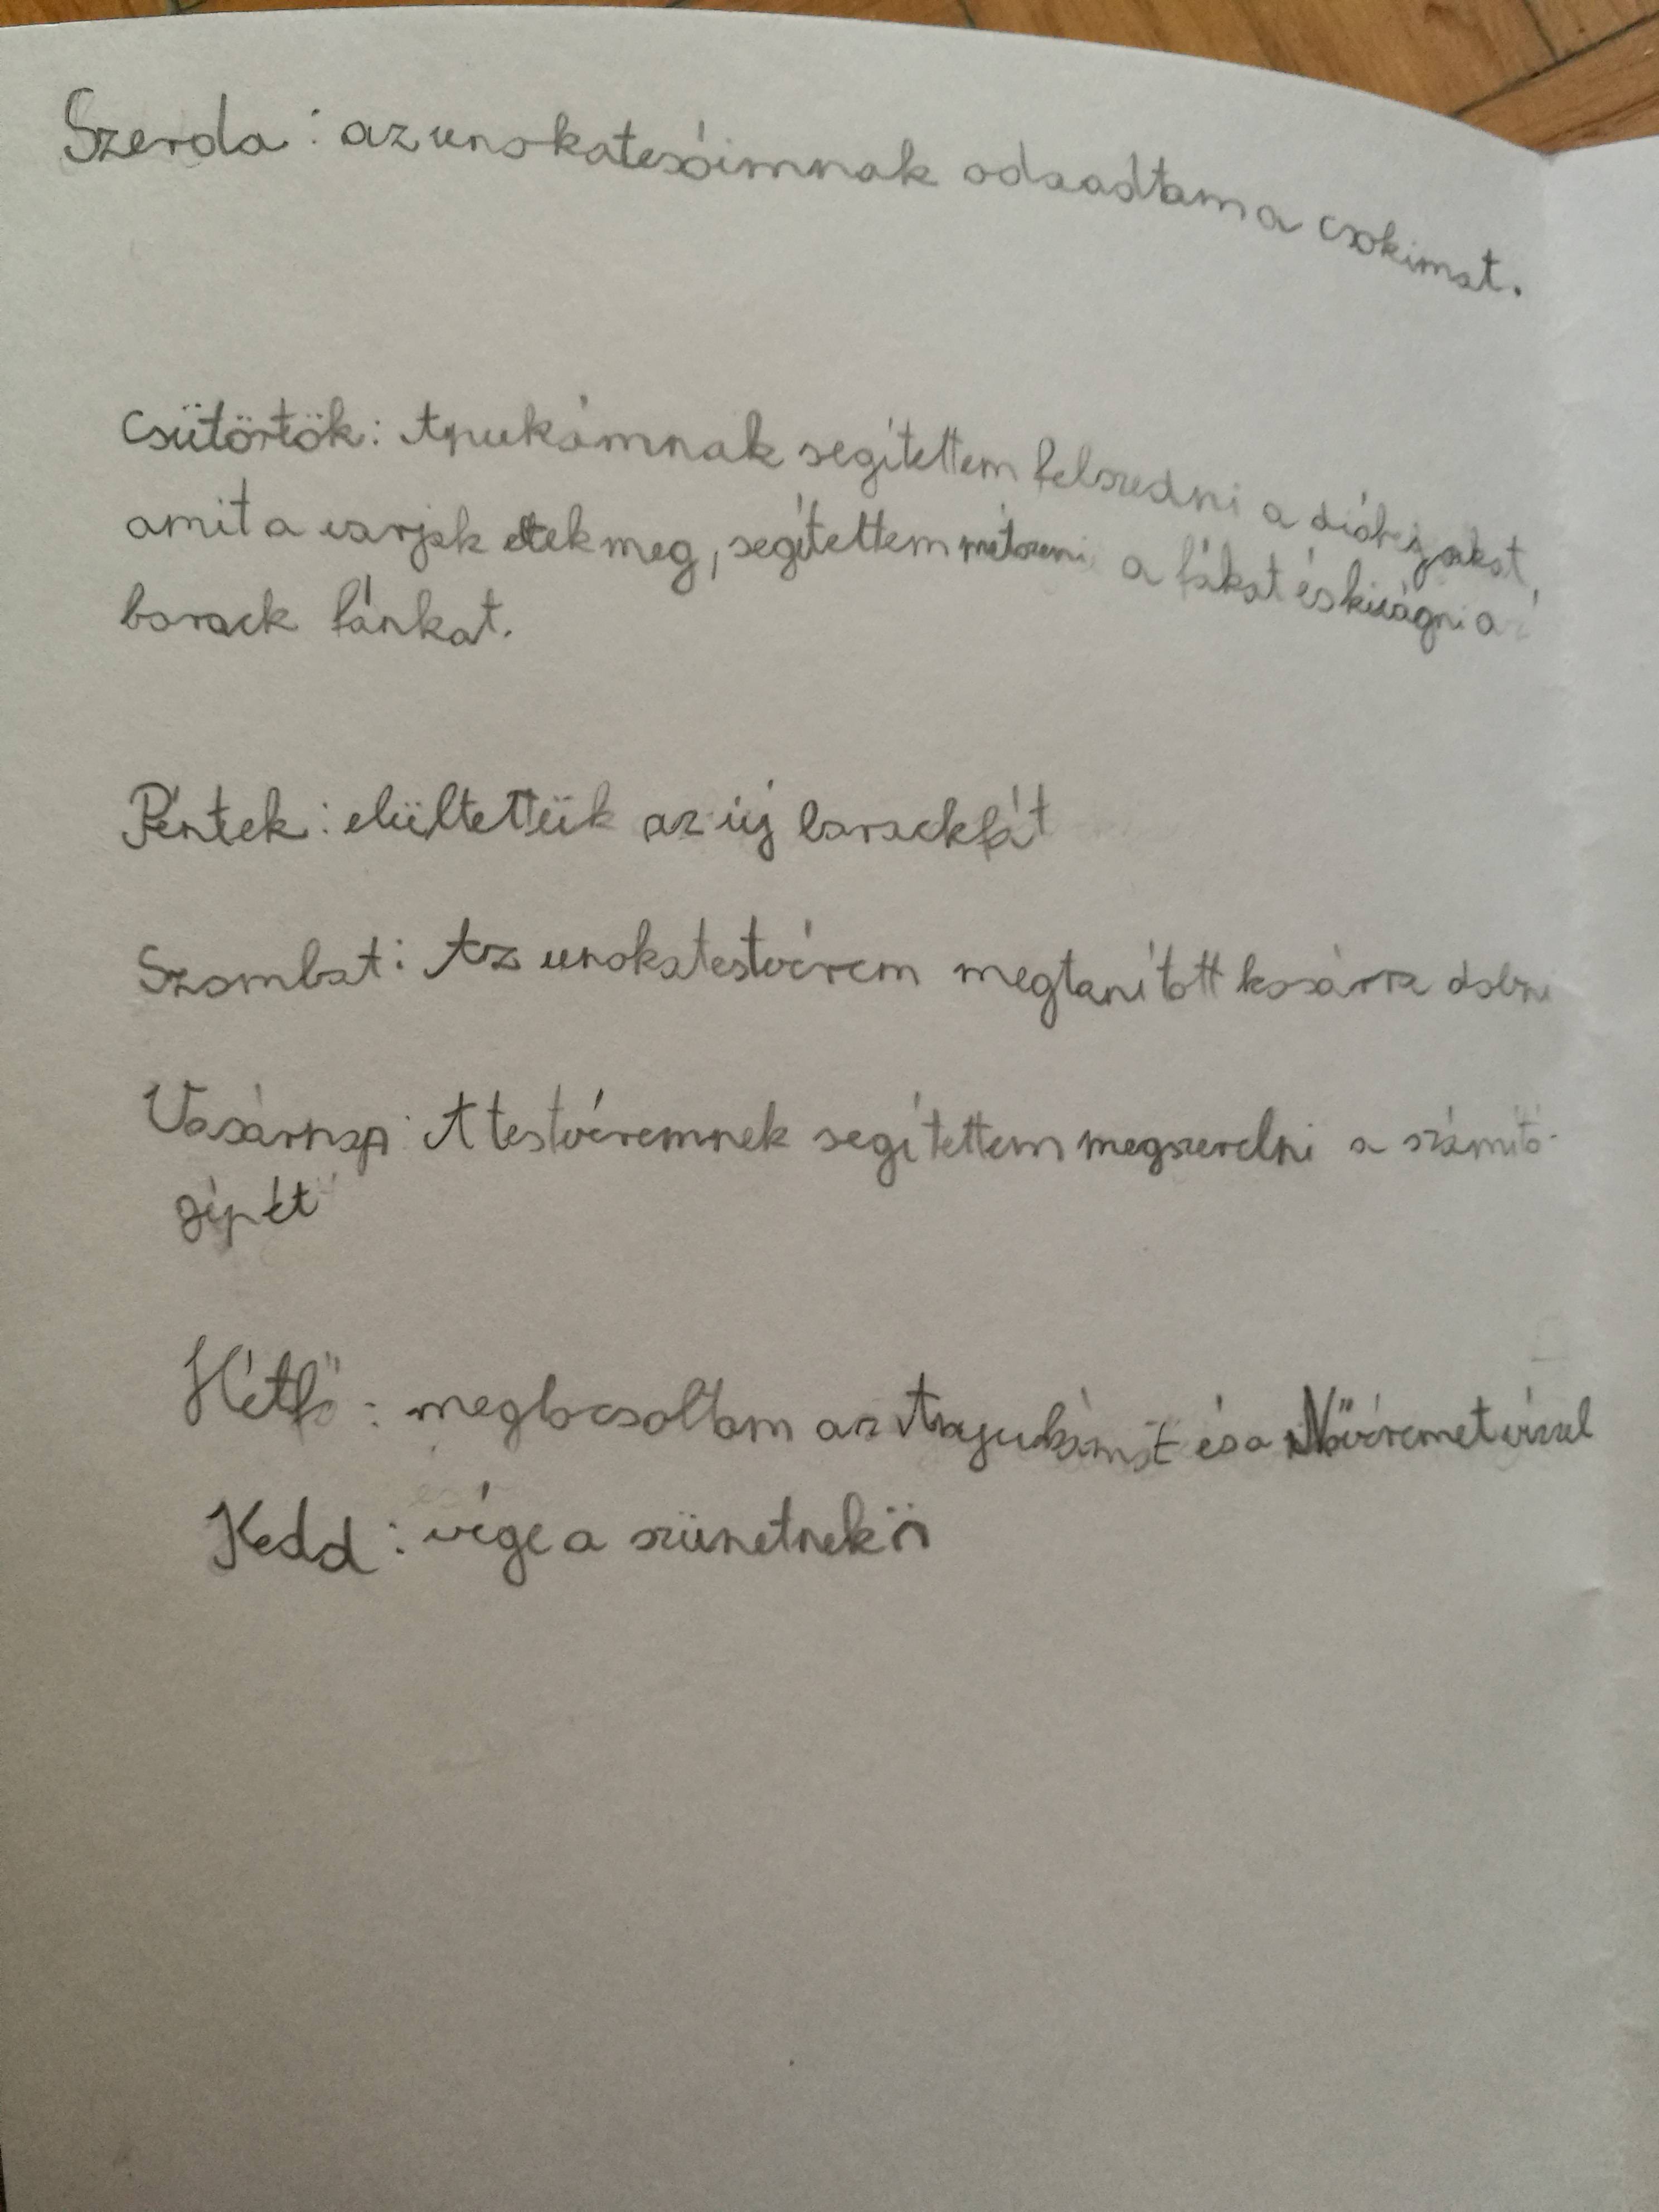 Szerda: az unokatesóimnak odaadtam a csokimat.
Csütörtök: Apukámnak segítettem felszedni a dióhéjakat,
amit a varjak ettek meg, segítettem metszeni a fákat és kivágni a
barack fánkat.
Péntek: elültettük az új barackfát
Szombat: Az unokatestvérem megtanított kosárra dobni
Vasárnap: A testvéremnek segítettem megszerelni a számító-
gépét
Hétfő: meglocsoltam az Anyukámat és a Nővéremet vízzel
Kedd: vége a szünetnek